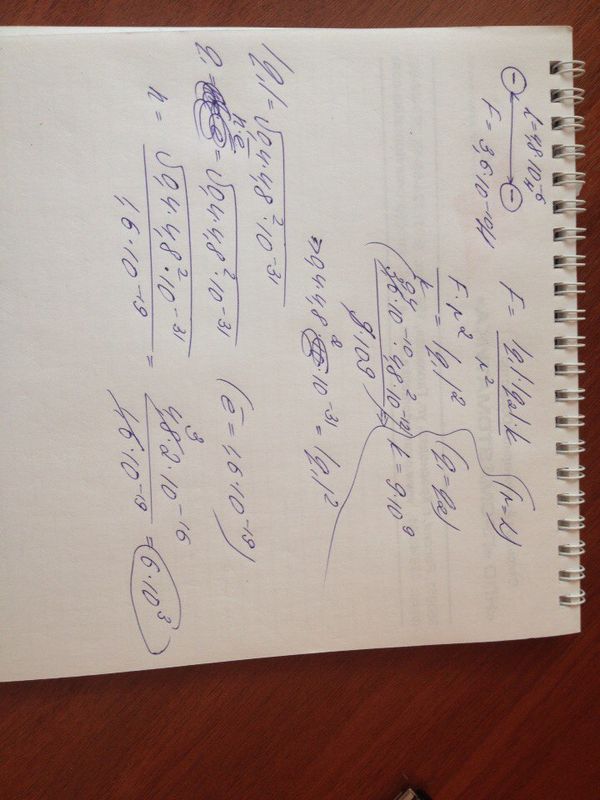 l = 4,8·10⁻⁶
F = 3,6·10⁻¹⁰ H
F = |q₁|·|q₂|·k / r² (r = l)
F·r² / k = |q₁|² (q₁ = q₂)
·10⁻¹⁰·4,8²·10⁻¹² / 9·10⁹ k = 9·10⁹
0,4·4,8²·10⁻³¹ = |q₁|²
|q₁| = √0,4·4,8²·10⁻³¹
q₁ = n·e = √0,4·4,8²·10⁻³¹ (e = 1,6·10⁻¹⁹)
n = √0,4·4,8²·10⁻³¹ / 1,6·10⁻¹⁹ = 4,8·2·10⁻¹⁶ / 1,6·10⁻¹⁹ = 6·10³